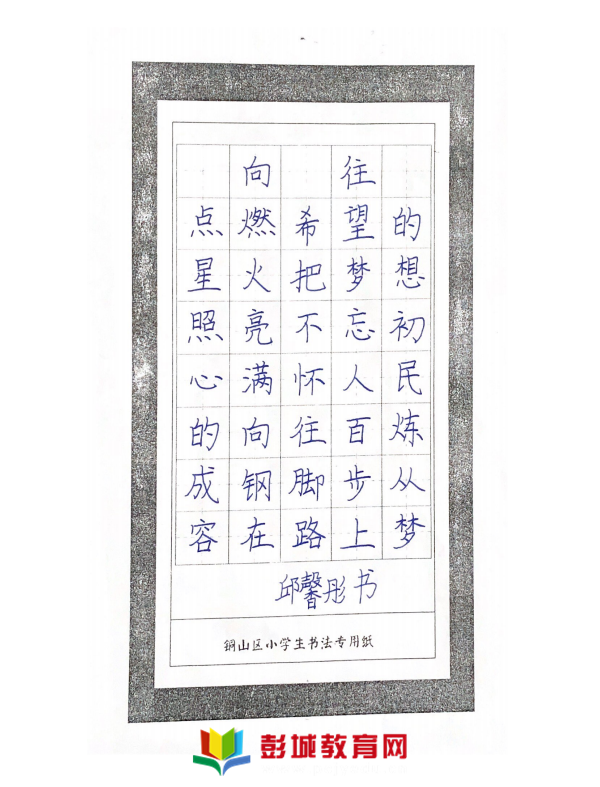 向往
点燃希望的
星火把梦想
照亮不忘初
心满怀人民
的向往百炼
成钢脚步从
容在路上梦
邱馨彤书
铜山区小学生书法专用纸
彭城教育网